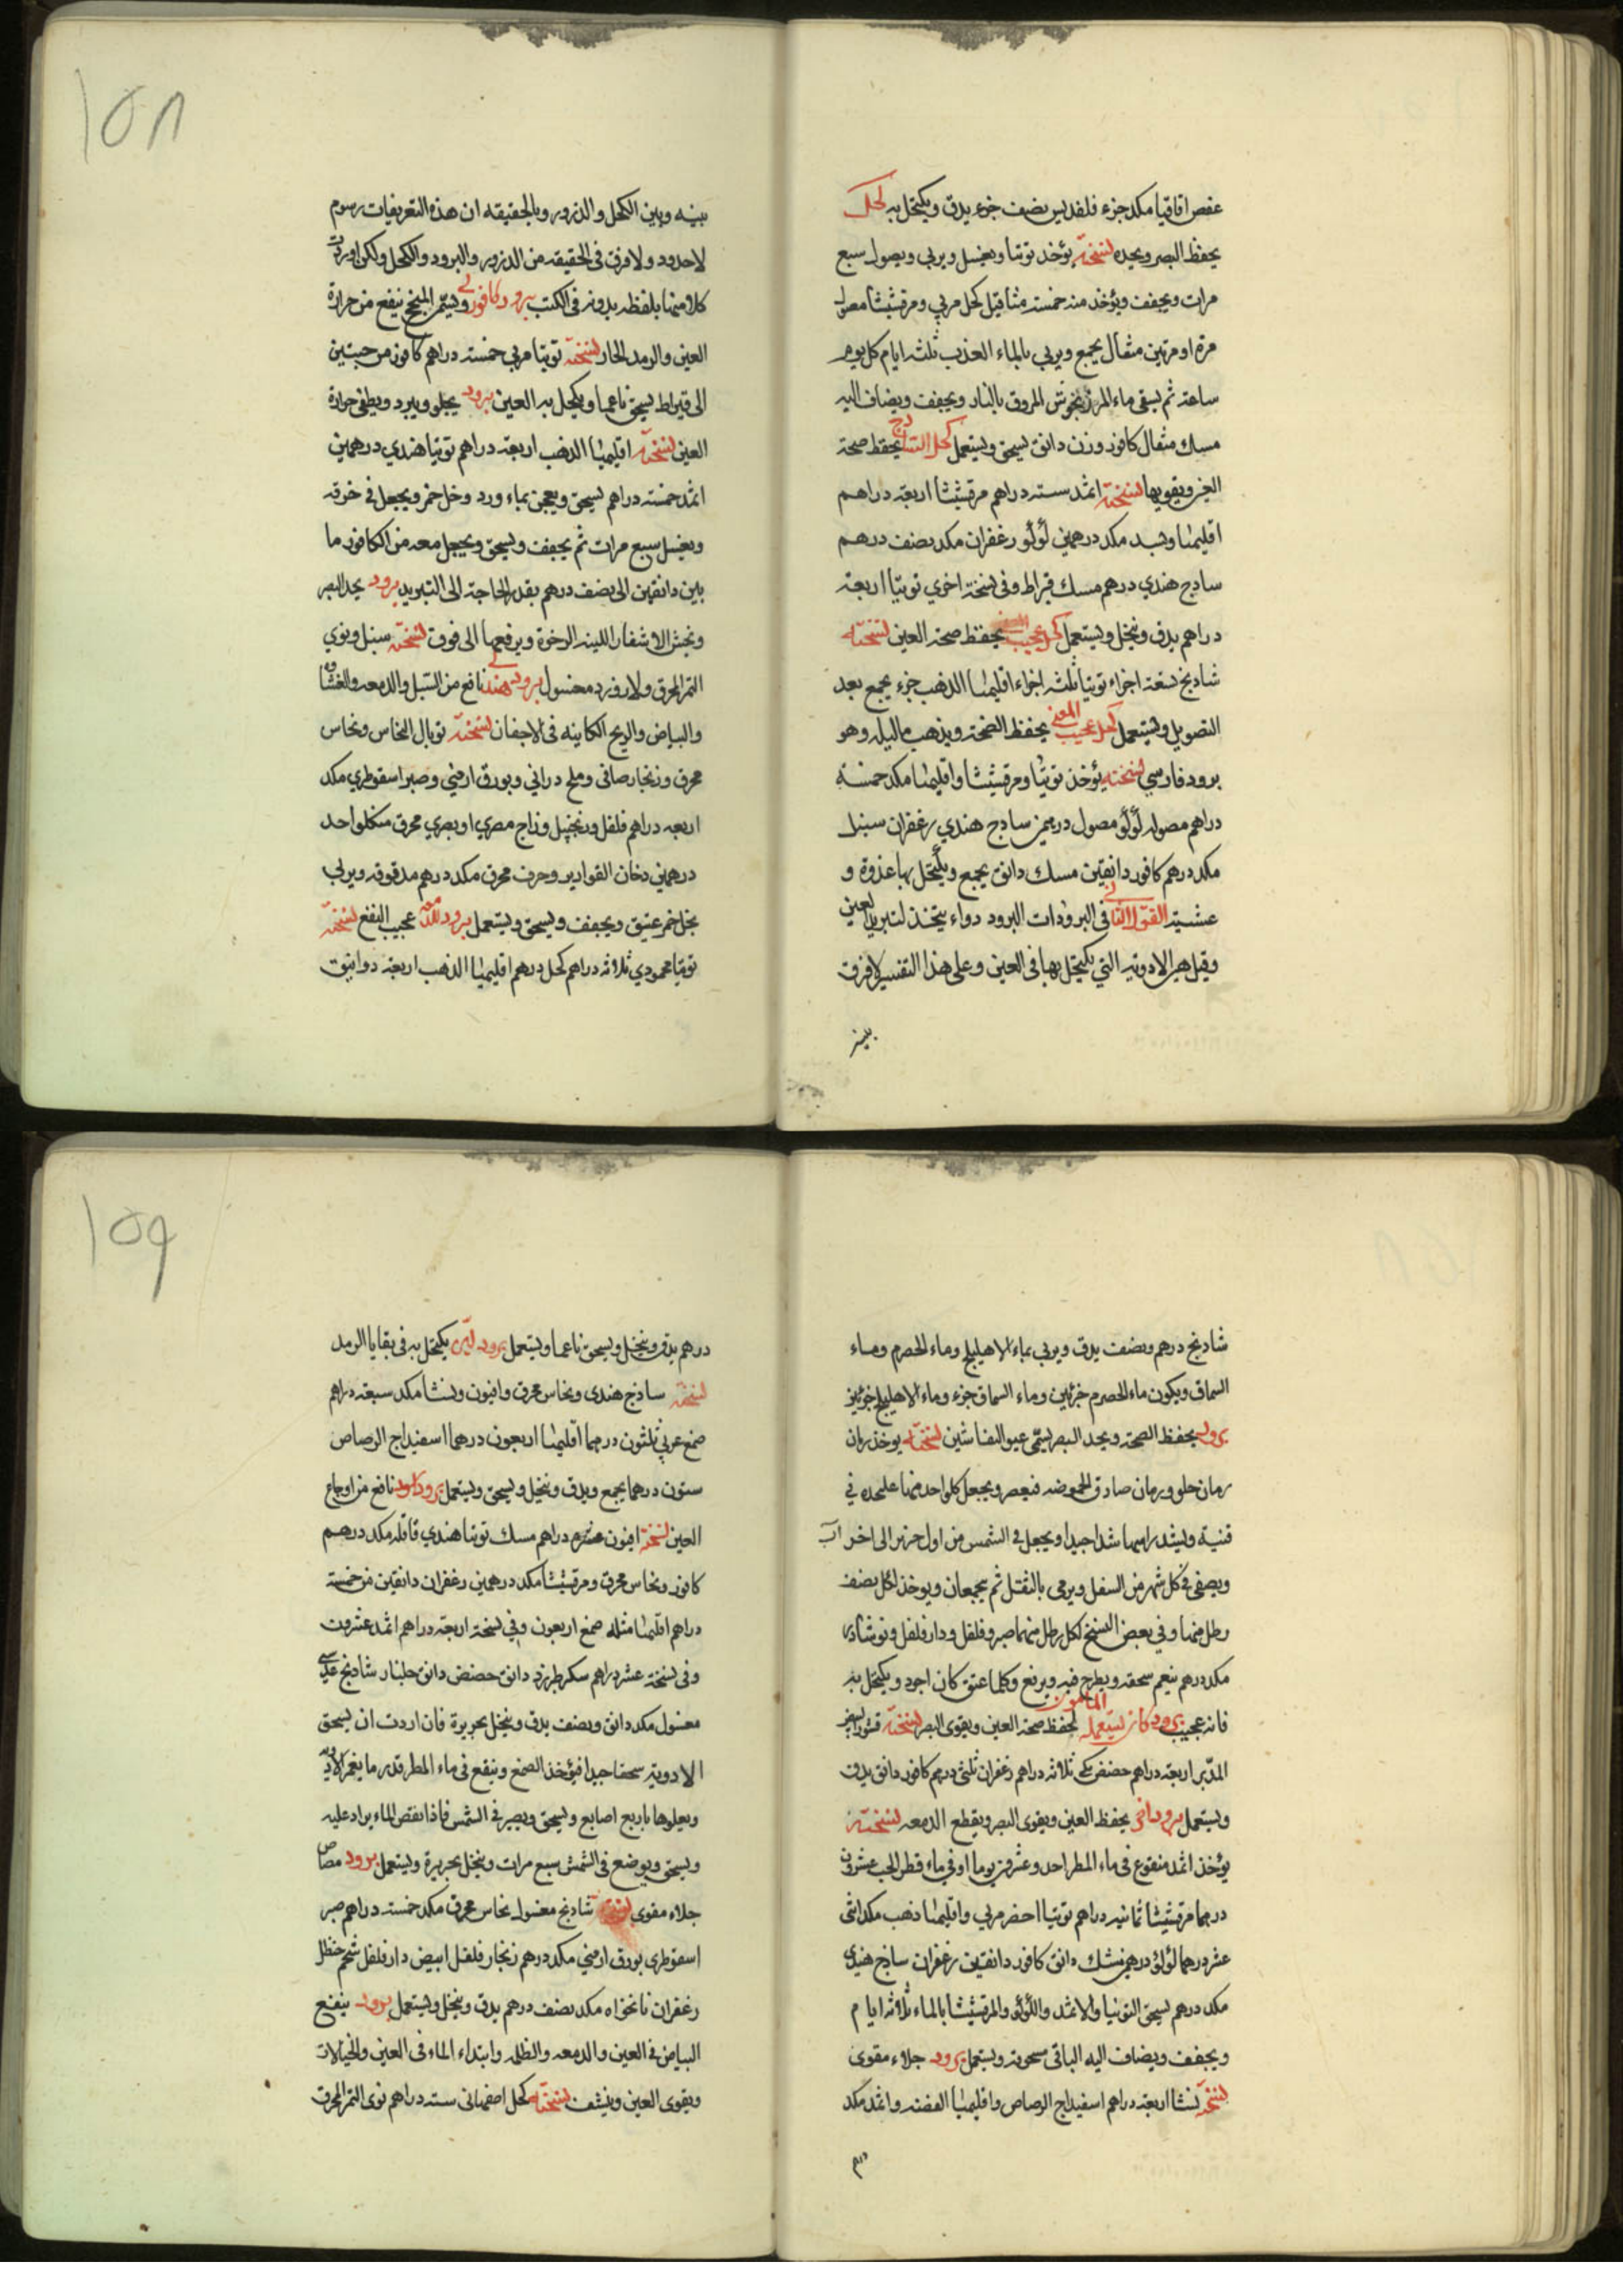 عفص اقاقيا مكد جزء فلفل بيض نصف جزء يدق ويكتحل به كحل
يحفظ البصر ويحده نسخته يؤخذ توتيا ويغسل ويربي ويصول سبع
مرات ويجفف ويؤخذ منه خمسة مثاقيل كحل مربي ومرقشيشا مصول
مرة او مرتين مثقال يجمع ويربي بالماء العذب ثلثه ايام كل يوم
ساعة ثم يسقى ماء المرزنجوش المروق بالنار ويجفف ويضاف اليه
مسك مثقال كافور وزن دانق يسحق ويستعمل كحل الساذج يحفظ صحة
العين ويقويها نسخته اثمد ستة دراهم مرقشيثا اربعة دراهم
اقليميا وبسد مكد درهمين لؤلؤ زعفران مكد نصف درهم
سادج هندي درهم مسك قيراط وفي نسخة اخري توتيا اربعة
دراهم يدق وينخل ويستعمل كحل عجيب يحفظ صحة العين نسخته
شاديج تسعة اجزاء توتيا ثلثه اجزاء اقليميا الذهب جزء يجمع بعد
التصويل ويستعمل كحل عجيب المعز يحفظ الصحة ويذهب بالبله وهو
برود فارسي نسخته يؤخذ توتيا ومرقشيثا واقليميا مكد خمسة
دراهم مصوله لؤلؤ مصول درهمين سادج هندي زعفران سنبل
مكد درهم كافور دانقين مسك دانق يجمع ويكتحل بها غدوة و
عشية القول الثاني في البرودات البرود دواء يتخذ لتبريد العين
وقيل هي الادوية التي يكتحل بها في العين وعلي هذا التفسير لا فرق
بينه
١٥٨
بينه وبين الكحل والذرور وبالحقيقه ان هذه التعريفات رسوم
لا حدود ولا فرق في الحقيقه من الذرور والبرود والكحل ولكن اوردت
كلا منها بلفظه يدونه في الكتب برود كافوري ويسمى المنجح ينفع من حرارة
العين والرمد الحار نسخته توتيا مربي خمسة دراهم كافور من حبتين
الى قيراط يسحق ناعما ويكتحل به العين برود يجلو ويبرد ويطفي حرارة
العين نسخته اقليميا الذهب اربعة دراهم توتيا هندي درهمين
اثمد خمسة دراهم يسحق ويعجن بماء ورد وخل خمر ويجعل في خرقه
ويغسل سبع مرات ثم يجفف ويسحق ويجعل معه من الكافور ما
بين دانقين الى نصف درهم بقدر الحاجة الى التبريد برود يحد البصر
وينبت الاشفار اللينه الرخوة ويرفعها الى فوق نسخته سنبل ونوي
التمر المحرق ولازورد مغسول برود هندي نافع من السبل والدمعه والغشاوه
والبياض والريح الكاينه في الاجفان نسخته توبال النحاس ونحاس
محرق وزنجار صافي وملح دراني وبورق ارمني وصبر اسقوطري مكد
اربعه دراهم فلفل وزنجبيل وزاج مصري او بصري محرق من كل واحد
درهمين دخان القوارير وحرف محرق مكد درهم مدقوقه ويربي
بخل خمر عتيق ويجفف ويسحق ويستعمل برود للدمعه عجيب النفع نسخته
توتيا محمودي ثلاثة دراهم كحل درهم اقليميا الذهب اربعة دوانيق
شاديج درهم ونصف يدق ويربي بماء الاهليلج وماء الحصرم وماء
السماق ويكون ماء الحصرم جزئين وماء السماق جزء وماء الاهليلج جزئين
برود يحفظ الصحة ويحد البصر يسمى عيون النفاشين نسخته يوخذ رمان
رمان حلو ورمان صادق الحموضه فيعصر ويجعل كل واحد منها على حده في
قنينة ويشد راسها شدا جيدا ويجعل في الشمس من اول حزيران الى اخر آب
ويصفى في كل شهر من السفل ويرمى بالثفل ثم يجمعان ويوخذ لكل نصف
رطل منها وفي بعض النسخ لكل رطل منهما صبر وفلفل ودارفلفل ونوشادر
مكد درهم ينعم سحقه ويطرح فيه ويرفع وكلما عتق كان اجود ويكتحل به
فانه عجيب برود كان يستعمله المأمون لحفظ صحة العين ويقوى البصر نسخته قشور البيض
المدبر اربعة دراهم حضض مكي ثلاثه دراهم زعفران ثلثى درهم كافور دانق يدق
ويستعمل برود اخر يحفظ العين ويقوى البصر ويقطع الدمعه نسخته
يؤخذ اثمد منقوع في ماء المطر احد وعشرين يوما او في ماء قطر الحب عشرون
درهما مرقشيشا ثمانيه دراهم توتيا اخضر مربي واقليميا ذهب مكد اثنى
عشر درهما لؤلؤ درهمين مسك دانق كافور دانقين زعفران ساذج هندي
مكد درهم يسحق التوتيا والاثمد واللؤلؤ والمرقشيشا بالماء ثلاثه ايام
ويجفف ويضاف اليه الباقي مسحوقه ويستعمل برود جلاء مقوى
نسخته نشا اربعة دراهم اسفيداج الرصاص واقليميا الفضه واثمد مكد
درهم
١٥٩
درهم يدق وينخل ويسحق ناعما ويستعمل برود لين يكتحل به في بقايا الرمد
نسخته ساذج هندى ونحاس محرق وافيون ونشا مكد سبعة دراهم
صمغ عربي ثلثون درهما اقليميا اربعون درهما اسفيداج الرصاص
ستون درهما يجمع ويدق وينخل ويسحق ويستعمل برود نافع من اوجاع
العين نسخته افيون عشره دراهم مسك توتيا هندي قاقله مكد درهم
كافور ونحاس محرق ومرقشيشا مكد درهمين زعفران دانقين من خمسة
دراهم اقليميا مثله صمغ اربعون وفي نسخة اربعة دراهم اثمد عشرون
وفي نسخة عشر دراهم سكر طبرزد دانق حضض دانق جلنار شاديج عدسي
مغسول مكد دانق ونصف يدق وينخل بحريرة فان اردت ان يسحق
الادوية سحقا جيدا فيؤخذ الصمغ وينقع في ماء المطر قدر ما يغمر الادوية
ويعلوها باربع اصابع ويسحق ويصير في الشمس فاذا نقص الماء يزاد عليه
ويسحق ويوضع في الشمس سبع مرات وينخل بحريرة ويستعمل برود مصاص
جلاء مقوى نسخته شاديج مغسول نحاس محرق مكد خمسة دراهم صبر
اسقوطرى بورق ارمني مكد درهم زنجار فلفل ابيض دارفلفل شحم حنظل
زعفران نانخواه مكد نصف درهم يدق وينخل ويستعمل برود ينفع
البياض في العين والدمعه والظلمه وابتداء الماء في العين والخيالات
ويقوى العين وينشف نسخته كحل اصفهانى ستة دراهم نوى التمر المحرق